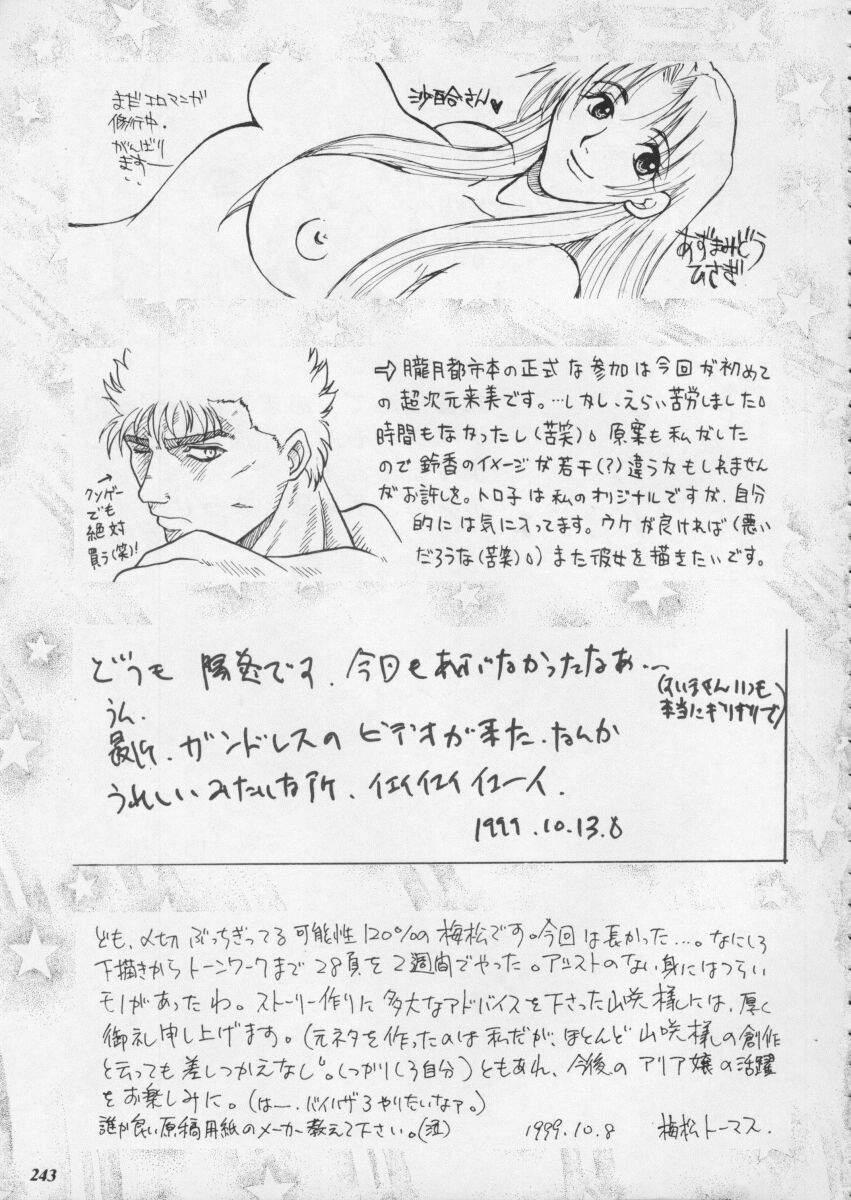 まだエロマンガ
修行中.
がんばり
ますー
沙百合さん♥
あずまみどう
ひさぎ
⇨ 朧月都市本の正式な参加は今回が初めて
の超次元来美です。…しかし、えらい苦労しました。
時間もなかったし(苦笑)。原案も私がした
ので鈴香のイメージが若干(?)違うかもしれません
がお許しを。トロ子は私のオリジナルですが、自分
的には気に入ってます。ウケが良ければ(悪い
だろうな(苦笑)。)また彼女を描きたいです。
→
クソゲー
でも
絶対
買う(笑)!
どうも 陽炎です. 今回もあぶなかったなぁ…
(すいませんいつも
本当にギリギリで)
うん.
最近. ガンドレスのビデオが来た. なんか
うれしいみたいな所. イエイイエイイエーイ.
1999.10.13.8
ども、〆切ぶっちぎってる可能性120%の梅松です。今回は長かった…。なにしろ
下描きからトーンワークまで28頁を2週間でやった。アシストのない身にはつらい
モノがあったわ。ストーリー作りに多大なアドバイスを下さった山咲様には、厚く
御礼申し上げます。(元ネタを作ったのは私だが、ほとんど山咲様の創作
と云っても差しつかえなし。しっかりしろ自分)ともあれ、今後のアリア嬢の活躍
をお楽しみに。(はー.バイハザ3やりたいなァ。)
誰か良い原稿用紙のメーカー教えて下さい。(泣) 1999.10.8 梅松トーマス.
243